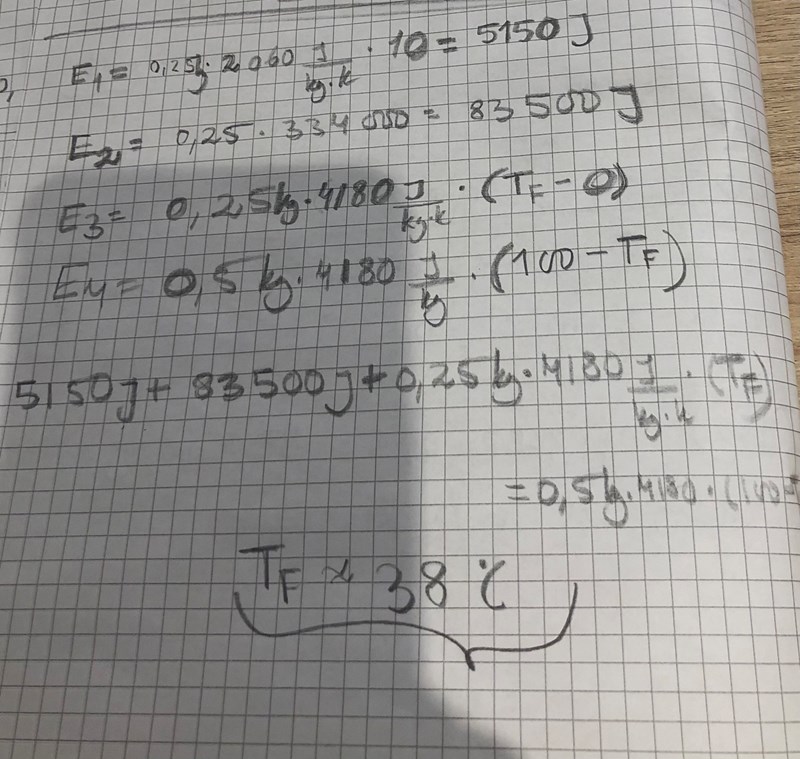 E₁ = 0,25kg · 2060 J/kg·k · 10 = 5150 J
E₂ = 0,25 · 334 000 = 83 500 J
E₃ = 0,25kg · 4180 J/kg·k · (TF - 0)
E₄ = 0,5 kg · 4180 J/kg · (100 - TF)
5150J + 83500J + 0,25kg · 4180 J/kg·k · (TF)
= 0,5kg · 4180 · (100
TF ≈ 38 °C